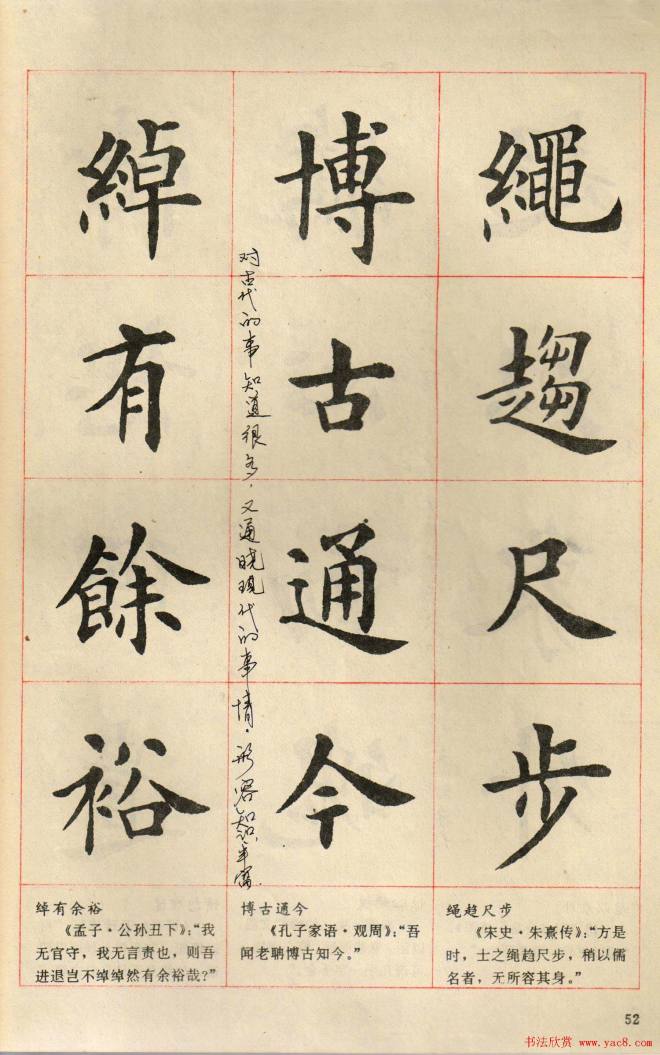 繩趨尺步
博古通今
綽有餘裕
对古代的事知道很多，又通晓现代的事情。形容知识丰富。
绳趋尺步
《宋史·朱熹传》：“方是
时，士之绳趋尺步，稍以儒
名者，无所容其身。”
博古通今
《孔子家语·观周》：“吾
闻老聃博古知今。”
绰有余裕
《孟子·公孙丑下》：“我
无官守，我无言责也，则吾
进退岂不绰绰然有余裕哉？”
52
书法欣赏 www.yac8.com